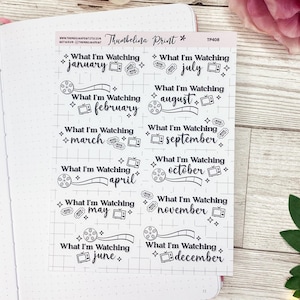 Thumbelina Print
TP408
What I'm Watching
january
What I'm Watching
february
What I'm Watching
march
What I'm Watching
april
What I'm Watching
may
What I'm Watching
june
What I'm Watching
july
What I'm Watching
august
What I'm Watching
september
What I'm Watching
october
What I'm Watching
november
What I'm Watching
december